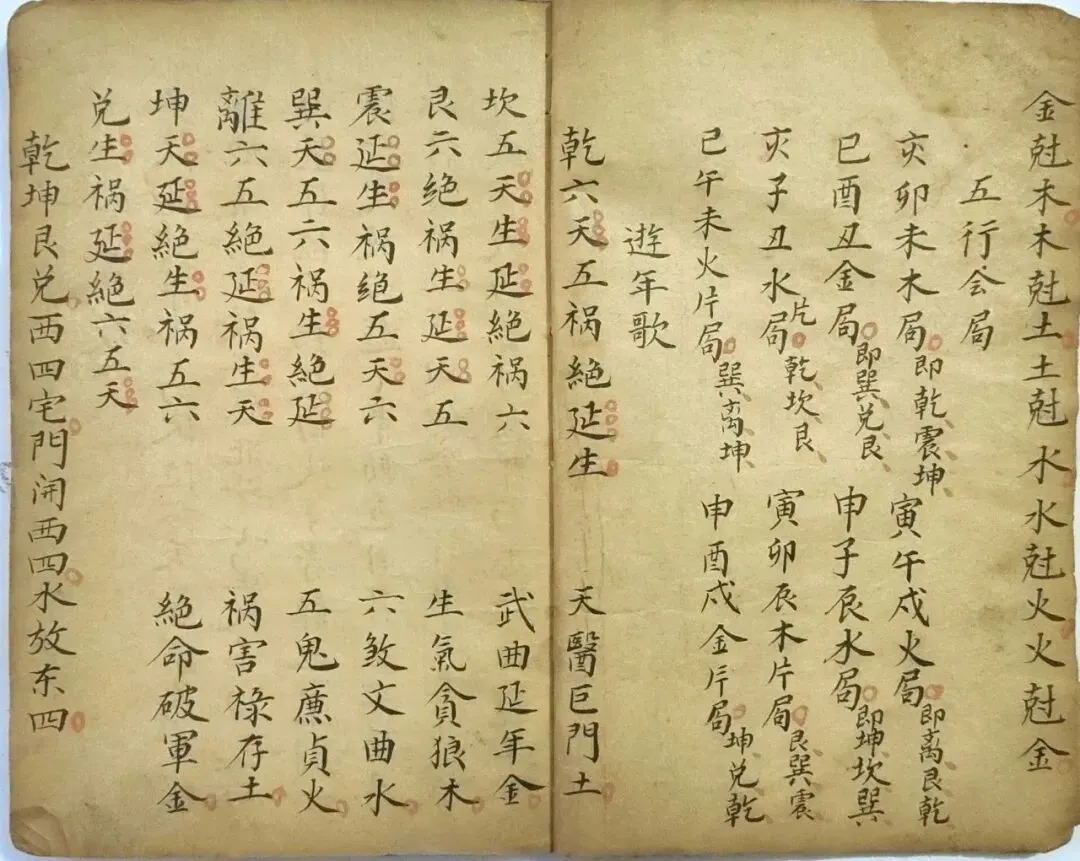 金尅木木尅土土尅水水尅火火尅金
五行会局
亥卯未木局即乾震坤 寅午戌火局即离艮乾
巳酉丑金局即巽兑艮 申子辰水局即坤坎巽
亥子丑水片局乾坎艮 寅卯辰木片局艮巽震
巳午未火片局巽离坤 申酉戌金片局坤兑乾
遊年歌
乾六天五祸绝延生 天醫巨門土
坎五天生延绝祸六 武曲延年金
艮六绝祸生延天五 生氣貪狼木
震延生祸绝五天六 六敨文曲水
巽天五六祸生絕延 五鬼廉貞火
離六五絕延祸生天 祸害祿存土
坤天延絕生祸五六 絕命破軍金
兑生祸延絕六五天
乾坤艮兑西四宅門闬西四水放东四